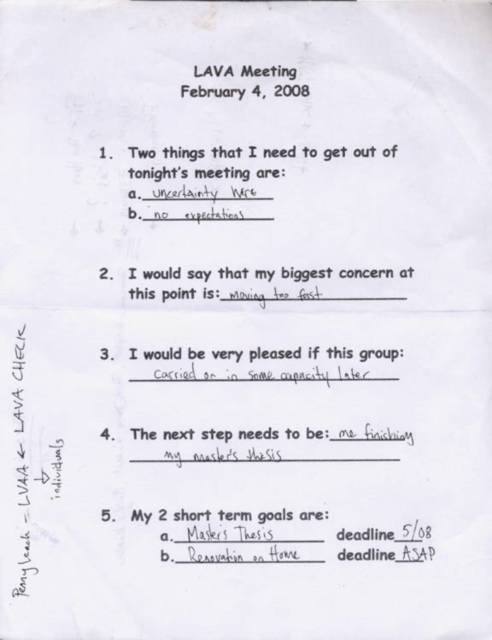 LAVA Meeting
February 4, 2008
1. Two things that I need to get out of
tonight's meeting are:
a. uncertainty here
b. no expectations
2. I would say that my biggest concern at
this point is: moving too fast
3. I would be very pleased if this group:
carried on in some capacity later
4. The next step needs to be: me finishing
my master's thesis
5. My 2 short term goals are:
a. Master's Thesis deadline 5/08
b. Renovation on Home deadline ASAP
Penny Leach - LVAA & LAVA CHECK
↓
individuals